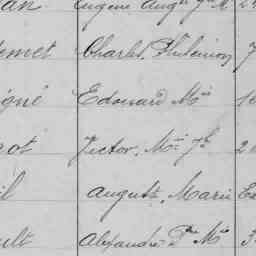 an Eugène Aug. Je M. 2
emet Charles, Philémon 7
igné Edouard Mie 1
ot Victor, Mie Jh 2
il Auguste, Marie E
ult Alexandre Dre Me 3